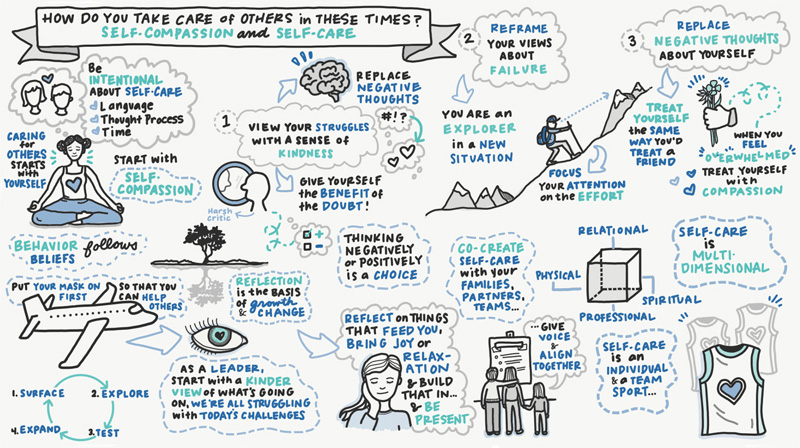 HOW DO YOU TAKE CARE OF OTHERS in THESE TIMES?
SELF-COMPASSION and SELF-CARE
Be
INTENTIONAL
ABOUT SELF-CARE
Language
Thought Process
Time
CARING
for
OTHERS
STARTS
with
YOURSELF
START with
SELF-
COMPASSION
BEHAVIOR follows
BELIEFS
1
VIEW YOUR STRUGGLES
WITH A SENSE of
KINDNESS
REPLACE
NEGATIVE
THOUGHTS
#!?
GIVE YOURSELF
the BENEFIT of
the DOUBT!
Harsh
critic
2
REFRAME
YOUR VIEWS
ABOUT
FAILURE
YOU ARE an
EXPLORER
in a NEW
SITUATION
FOCUS
YOUR ATTENTION
on the EFFORT
3
REPLACE
NEGATIVE THOUGHTS
ABOUT YOURSELF
TREAT
YOURSELF
the SAME
WAY YOU'D
TREAT A
FRIEND
WHEN YOU
FEEL
OVERWHELMED
TREAT YOURSELF
with
COMPASSION
PUT YOUR MASK ON
FIRST
SO THAT YOU
CAN HELP
OTHERS
1. SURFACE
2. EXPLORE
3. TEST
4. EXPAND
REFLECTION
is the BASIS
of growth
& CHANGE
AS A LEADER,
START with a KINDER
VIEW OF WHAT'S GOING
ON, WE'RE ALL STRUGGLING
with TODAY'S CHALLENGES
THINKING
NEGATIVELY
or POSITIVELY
is a CHOICE
REFLECT on THINGS
THAT FEED YOU,
BRING JOY or
RELAX-
ATION
& BUILD
THAT IN...
& BE
PRESENT
CO-CREATE
SELF-CARE
with your
FAMILIES,
PARTNERS,
TEAMS...
...GIVE
VOICE
&
ALIGN
TOGETHER
RELATIONAL
PHYSICAL
SPIRITUAL
PROFESSIONAL
SELF-CARE
is
MULTI-
DIMENSIONAL
SELF-CARE
is an
INDIVIDUAL
& a TEAM
SPORT...